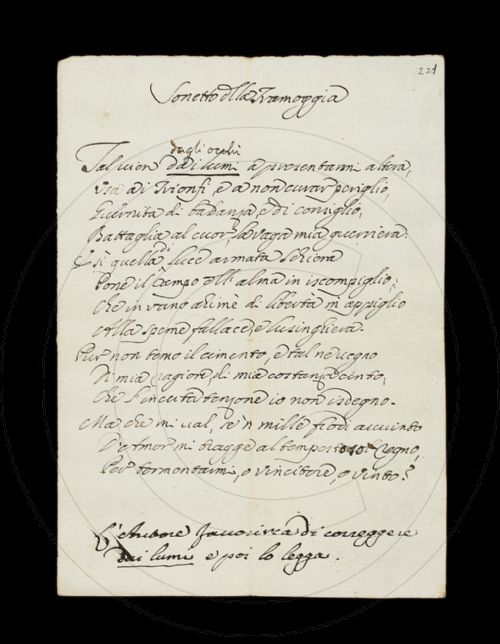 221
Sonetto della Tramoggia
dagli occhi
Talvien dai lumi a presentarmi altera,
Usa ai Trionfi, e a non curar periglio,
Guernita di baldanza, e di consiglio,
Battaglia al cuor la vaga mia guerriera.
E sì quella di luce armata schiera
Pone il campo dell'alma in iscompiglio,
Che in vano ahimè di libertà m'appiglio
Alla speme fallace, e lusinghiera.
Pur non temo il cimento, e tal ne vegno
Di mia ragione, di mia costanza cinto,
Che l'incerta tenzone io non isdegno.
Ma che mi val, se 'n mille frodi avvinto
D'Amor mi tragge al Regno,
Per tormentarmi, o vincitore, o vinto?
L'Autore favorisca di correggere
dai lumi e poi lo legga.